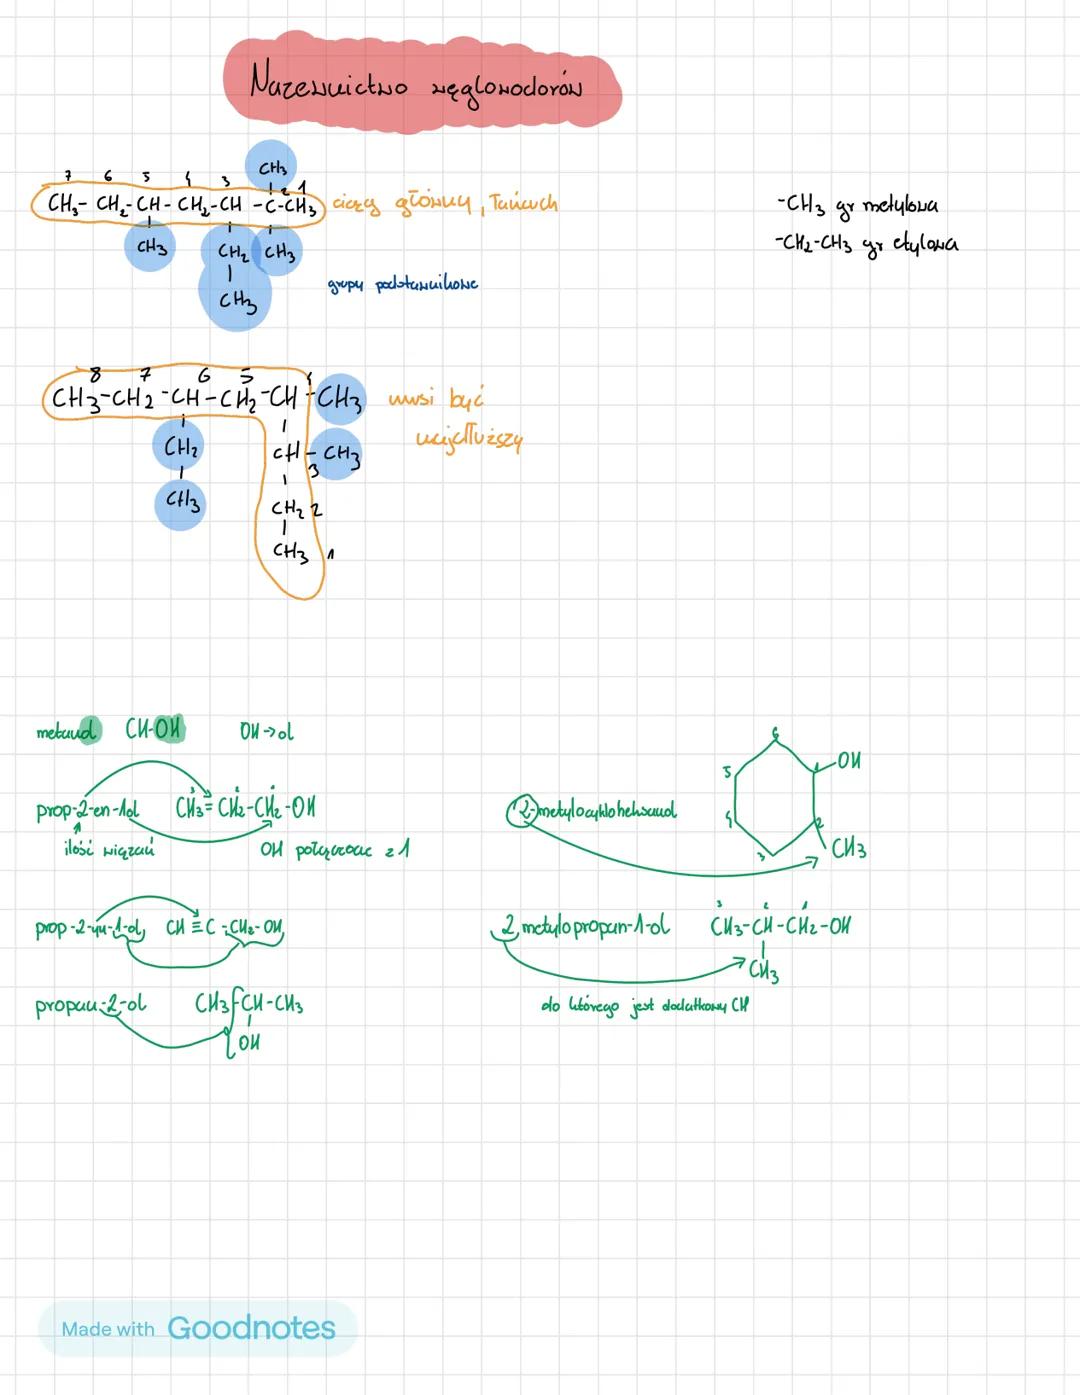 Nazewnictwo węglowodorów
CH3
7 6 5 4 3 2 1
CH3- CH2-CH- CH2-CH -C-CH3 ciąg główny, łańcuch
CH3 CH2 CH3
CH3
grupy podstawnikowe
-CH3 gr metylowa
-CH2-CH3 gr etylowa
8 7 6 5 4
CH3-CH2-CH-CH2-CH-CH3 musi być
najdłuższy
CH2 CH-CH3
3
CH3 CH2 2
CH3 1
metanol CH-OH OH→ol
prop-2-en-1ol CH3=CH2-CH2-OH
ilość wiązań OH połączone z 1
prop-2-yn-1-ol CH≡C-CH2-OH
propan-2-ol CH3-CH-CH3
OH
6
5 1 OH
2-metylocykloheksanol
4 2
3 CH3
2,metylopropan-1-ol CH3-CH-CH2-OH
3 2 1
CH3
do którego jest dodatkowy CH
Made with Goodnotes